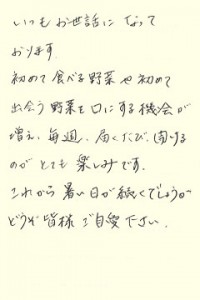 いつもお世話になって
おります
初めて食べる野菜や初めて
出会う野菜を口にする機会が
増え、毎週、届くたび、開ける
のがとても楽しみです。
これから暑い日が続くでしょうが
どうぞ皆様ご自愛下さい。